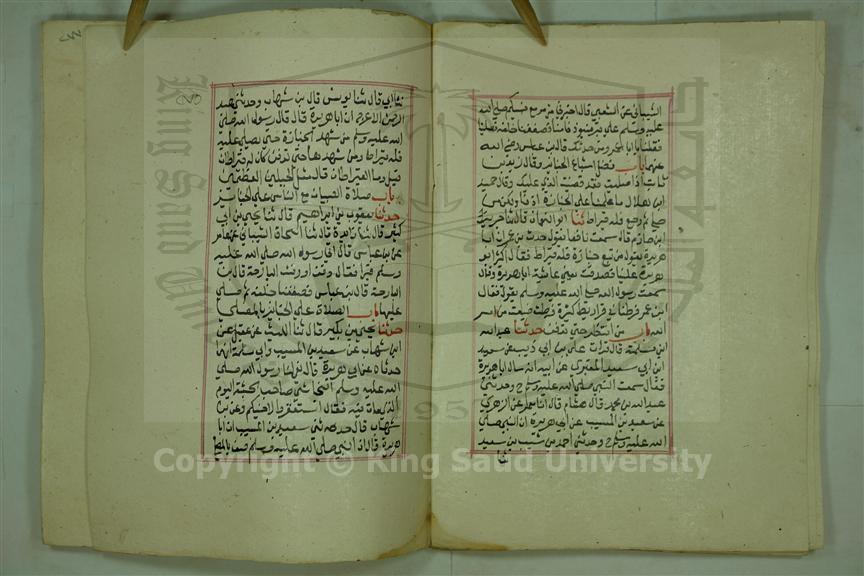 الشيباني عن الشعبي قال اخبرني من مر مع نبيكم صلى الله
عليه وسلم على قبر منبوذ فأمنا فصففنا خلفه فصلينا
فقلنا يا ابا عمرو من حدثك قال بن عباس رضي الله
عنهما باب فضل اتباع الجنائز وقال زيد بن
ثابت اذا صليت فقد قضيت الذي عليك وقال حميد
ابن هلال ما علمنا على الجنازة اذنا ولكن من
صلى ثم رجع فله قيراط ثنا ابو النعمان قال ثنا جرير
ابن حازم قال سمعت نافعا يقول حدث بن عمر ان ابا
هريرة يقول من تبع جنازة فله قيراط فقال اكثر ابو
هريرة علينا فصدقت يعني عائشة ابا هريرة وقالت
سمعت رسول الله صلى الله عليه وسلم يقوله فقال
بن عمر فرطنا في قراريط كثيرة فرطت ضيعت من امر
الله باب من انتظر حتى تدفن حدثنا عبد الله
ابن مسلمة قال قرات على بن ابي ذيب عن سعيد
ابن ابي سعيد المقبري عن ابيه انه سال ابا هريرة
فقال سمعت النبي صلى الله عليه وسلم ح وحدثني
عبد الله بن محمد قال هشام قال انا معمر عن الزهري
عن سعيد بن المسيب عن ابي هريرة ان النبي صلى
الله عليه وسلم ح وحدثني احمد بن شبيب بن سعيد
ثنا ابي قال ثنا يونس قال بن شهاب وحدثني عبد
الرحمن الاعرج ان ابا هريرة قال قال رسول الله صلى
الله عليه وسلم من شهد الجنازة حتى يصلي عليه
فله قيراط ومن شهدها حتى تدفن كان له قيراطان
قيل وما القيراطان قال مثل الجبلين العظيمين
باب صلاة الصبيان مع الناس على الجنائز
حدثنا يعقوب بن ابراهيم قال ثنا يحيى بن ابي
كثير قال ثنا زايدة قال ثنا ابو اسحاق الشيباني عن عامر
عن بن عباس قال اتى رسول الله صلى الله عليه
وسلم قبرا فقالوا دفن او دفنت البارحة قال بن
عباس فصففنا خلفه ثم صلى
عليها باب الصلاة على الجنائز بالمصلى
حدثنا يحيى بن بكير قال ثنا الليث عن عقيل عن
ابن شهاب عن سعيد بن المسيب وابي سلمة انهما
حدثاه عن ابي هريرة قال نعى لنا رسول الله صلى
الله عليه وسلم النجاشي صاحب الحبشة اليوم
الذي مات فيه فقال استغفروا لاخيكم وعن بن
شهاب قال حدثني سعيد بن المسيب ان ابا
هريرة قال ان النبي صلى الله عليه وسلم صف بالمصلى
Copyright © King Saud University
King Saud University
1957